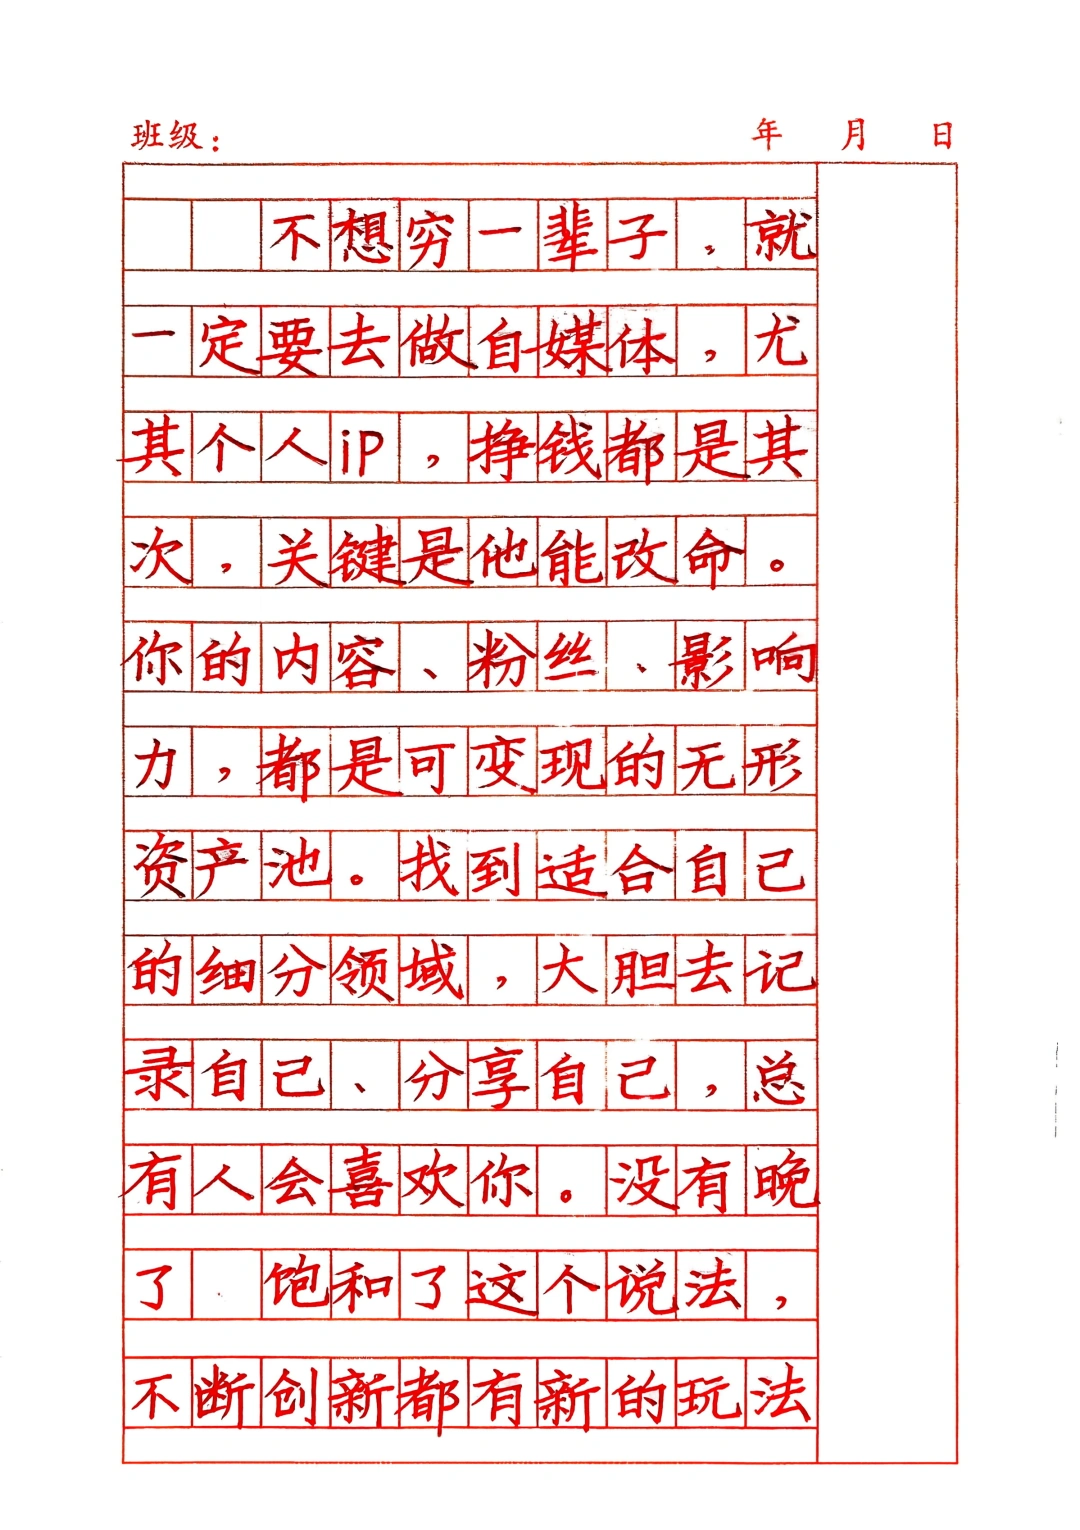 班级： 年 月 日
不想穷一辈子，就
一定要去做自媒体，尤
其个人iP，挣钱都是其
次，关键是他能改命。
你的内容、粉丝、影响
力，都是可变现的无形
资产池。找到适合自己
的细分领域，大胆去记
录自己、分享自己，总
有人会喜欢你。没有晚
了 饱和了这个说法，
不断创新都有新的玩法